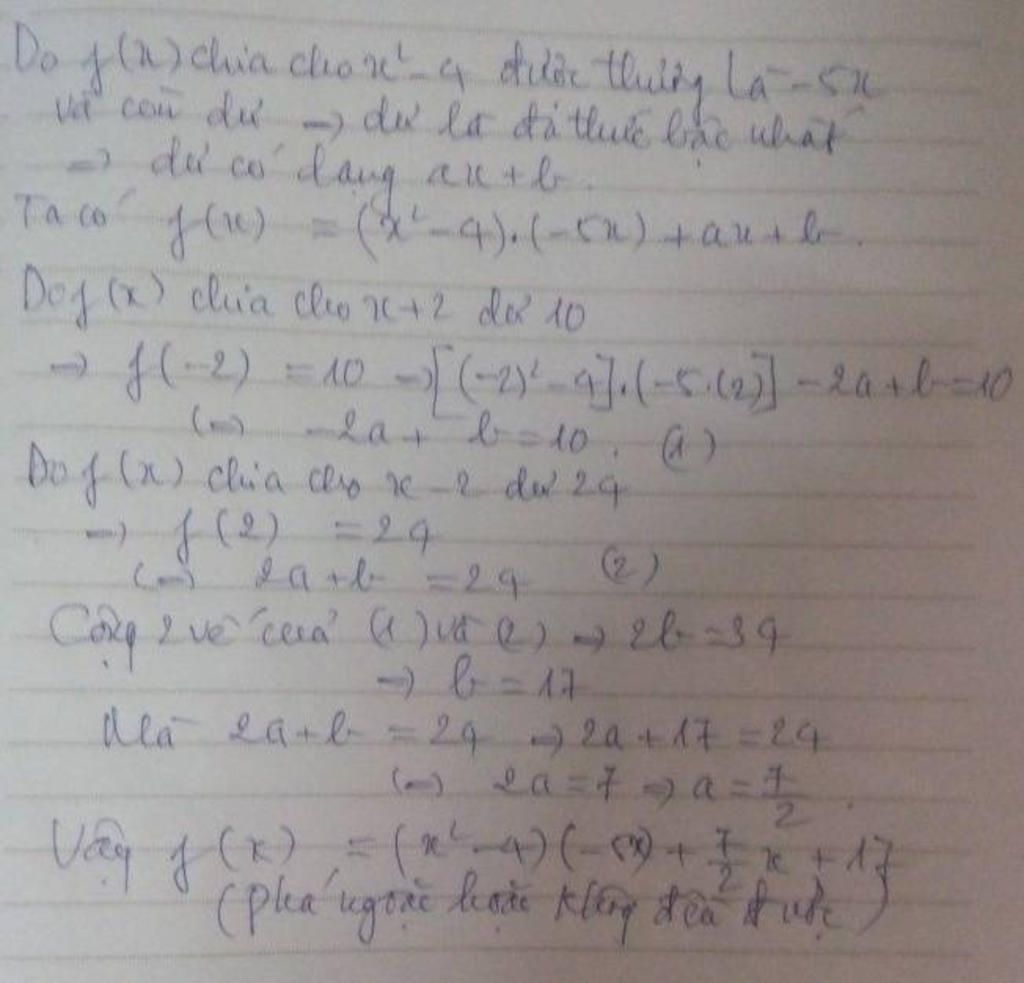 Do f(x) chia cho x² - 4 được thương là -5x
và còn dư → dư là đa thức bậc nhất
=> dư có dạng ax + b.
Ta có f(x) = (x² - 4).(-5x) + ax + b.
Do f(x) chia cho x+2 dư 10
→ f(-2) = 10 → [(-2)² - 4].(-5.(2)] - 2a + b = 10
(=) -2a + b = 10. (1)
Do f(x) chia cho x - 2 dư 24
→ f(2) = 24
(=) 2a + b = 24 (2)
Cộng 2 vế của (1) và (2) => 2b = 34
→ b = 17
Mà 2a + b = 24 => 2a + 17 = 24
(=) 2a = 7 => a = 7/2.
Vậy f(x) = (x² - 4)(-5x) + 7/2 x + 17
(phá ngoặc hoặc không đều được)